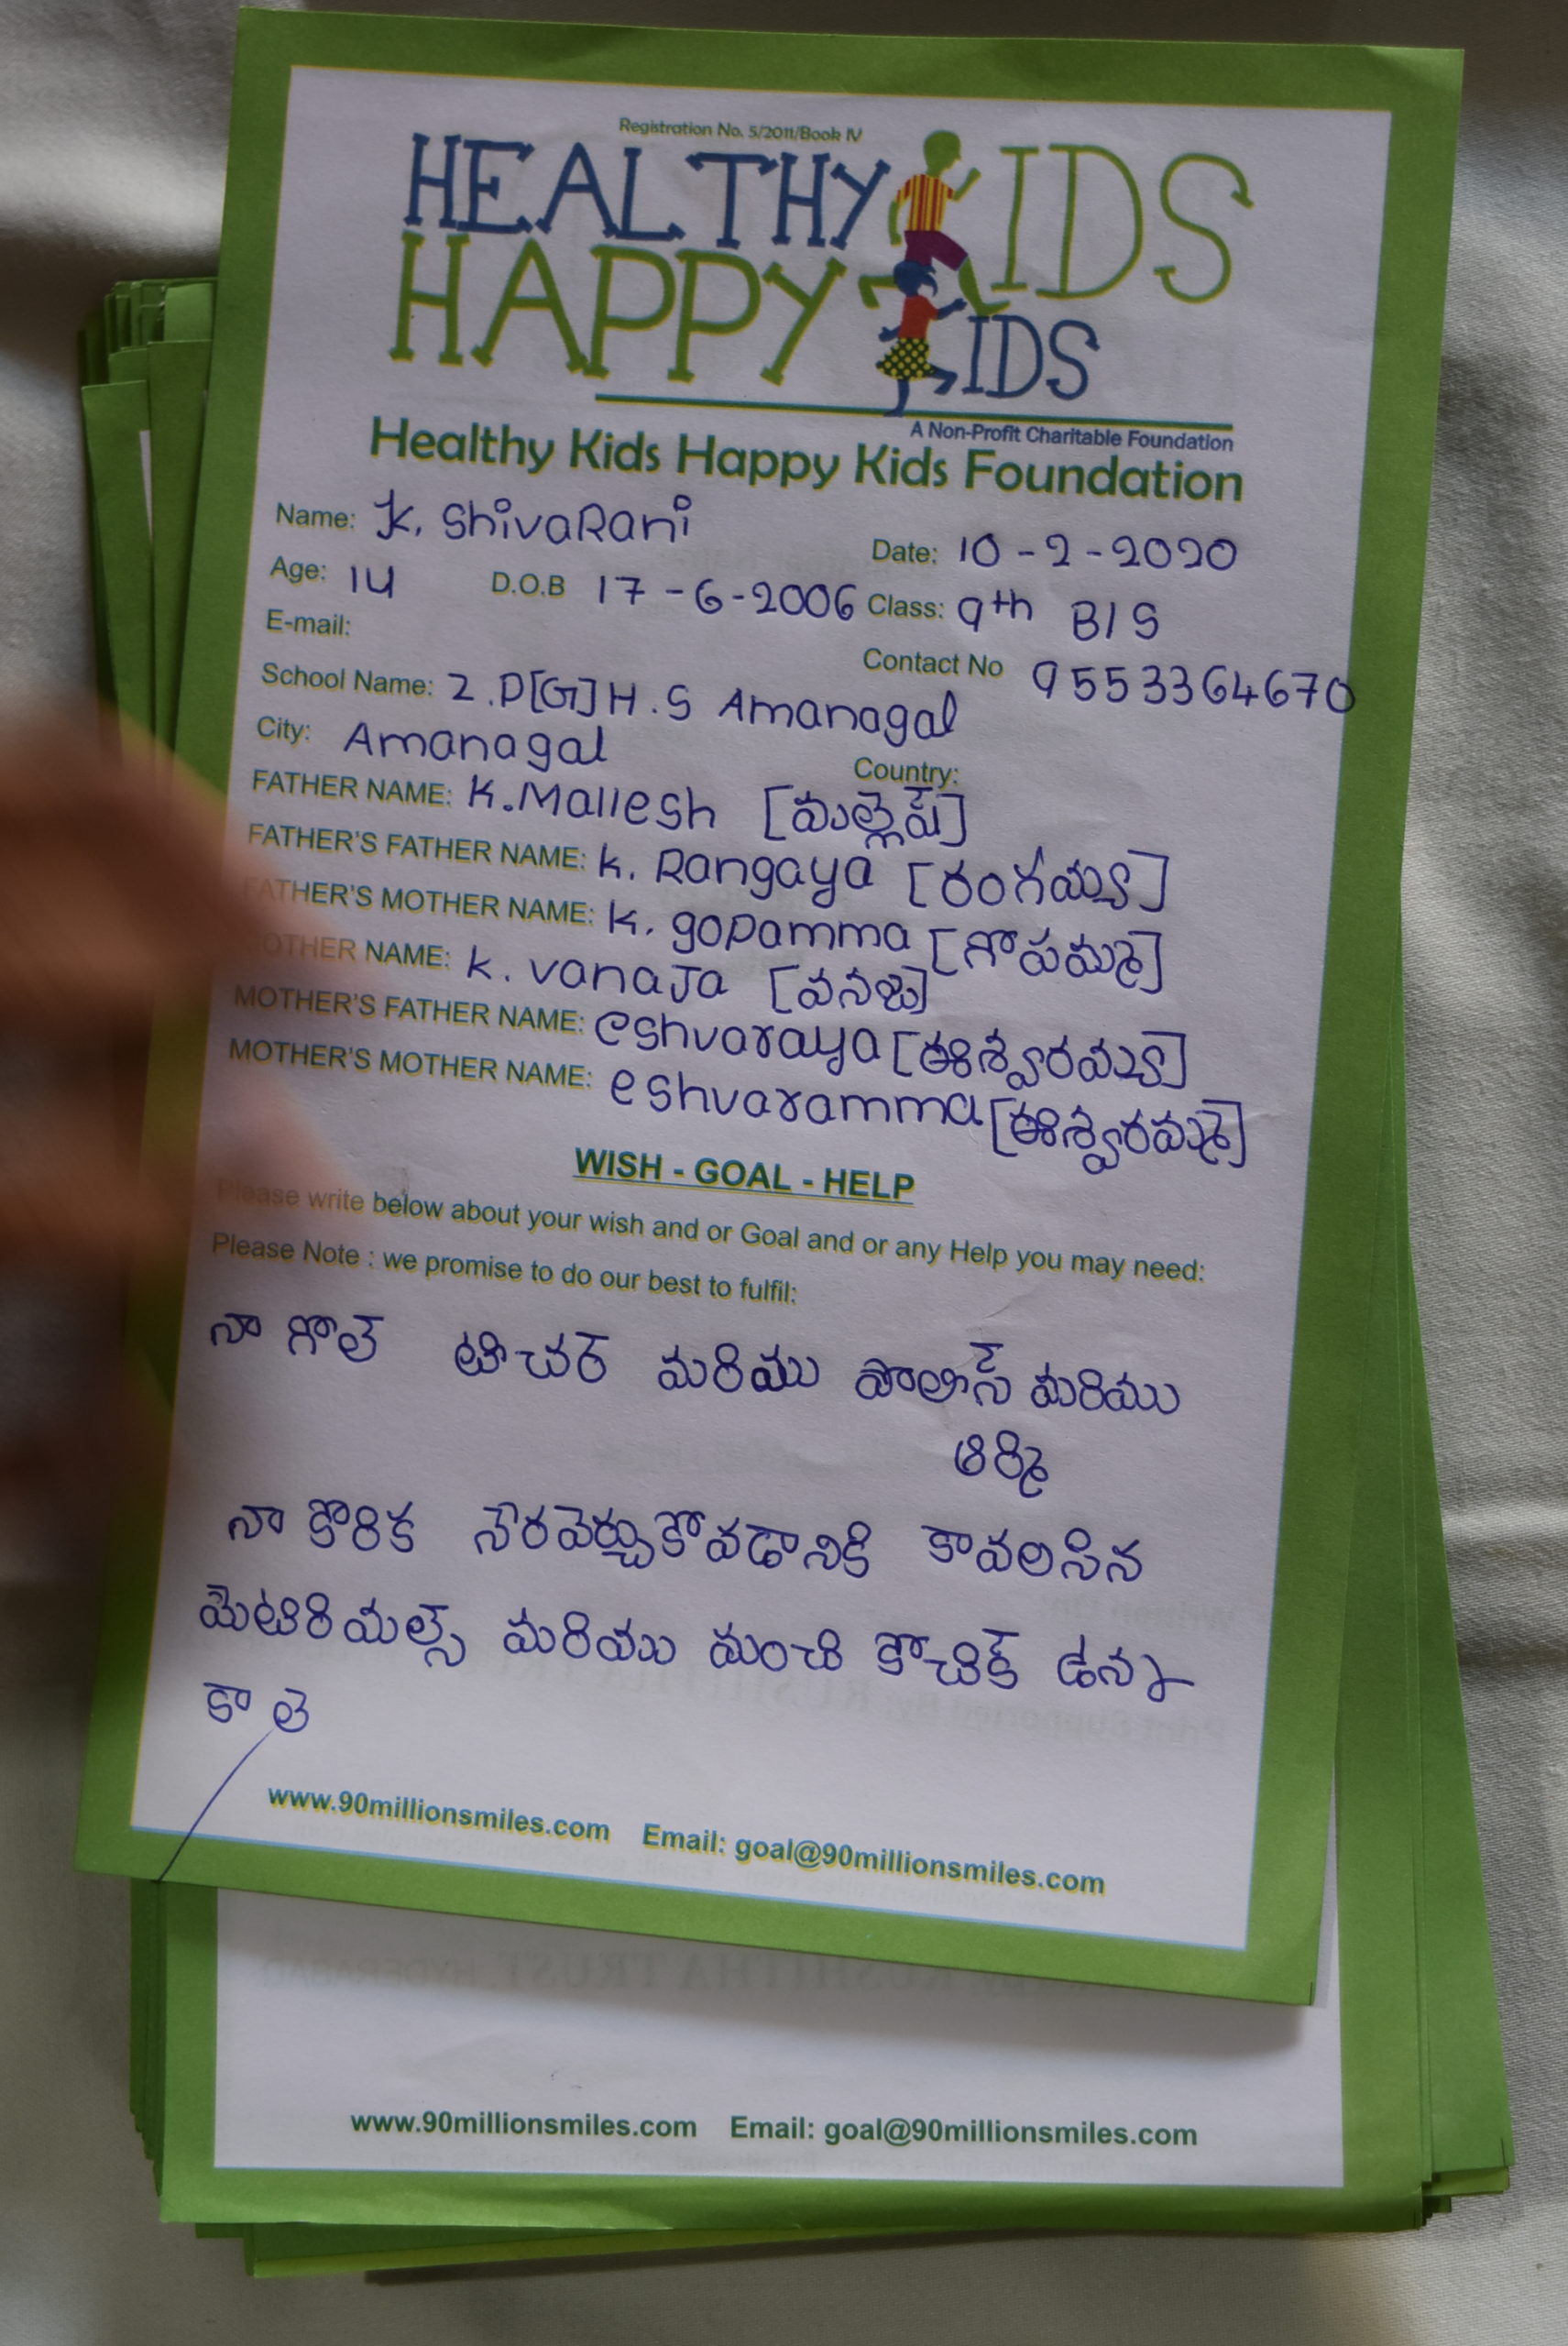 Registration No. 5/2011/Book IV
HEALTHY KIDS
HAPPY KIDS
A Non-Profit Charitable Foundation
Healthy Kids Happy Kids Foundation
Name: K. ShivaRani
Date: 10-2-2020
Age: 14 D.O.B 17-6-2006 Class: 9th B/S
E-mail:
Contact No 9553364670
School Name: Z.P[G]H.S Amanagal
City: Amanagal
Country:
FATHER NAME: K.Mallesh [మల్లేష్]
FATHER'S FATHER NAME: K. Rangaya [రంగయ్య]
FATHER'S MOTHER NAME: K. gopamma [గోపమ్మ]
MOTHER NAME: K. vanaJa [వనజ]
MOTHER'S FATHER NAME: eshvaraya [ఈశ్వరయ్య]
MOTHER'S MOTHER NAME: eshvaramma [ఈశ్వరమ్మ]
WISH - GOAL - HELP
Please write below about your wish and or Goal and or any Help you may need:
Please Note : we promise to do our best to fulfil:
నా గోల్ టీచర్ మరియు పోలీస్ మరియు
ఆర్మి
నా కోరిక నేరవేర్చుకోవడానికి కావలసిన
మెటిరియల్స్ మరియు మంచి కోచిక్
కా లె
www.90millionsmiles.com Email: goal@90millionsmiles.com
www.90millionsmiles.com Email: goal@90millionsmiles.com